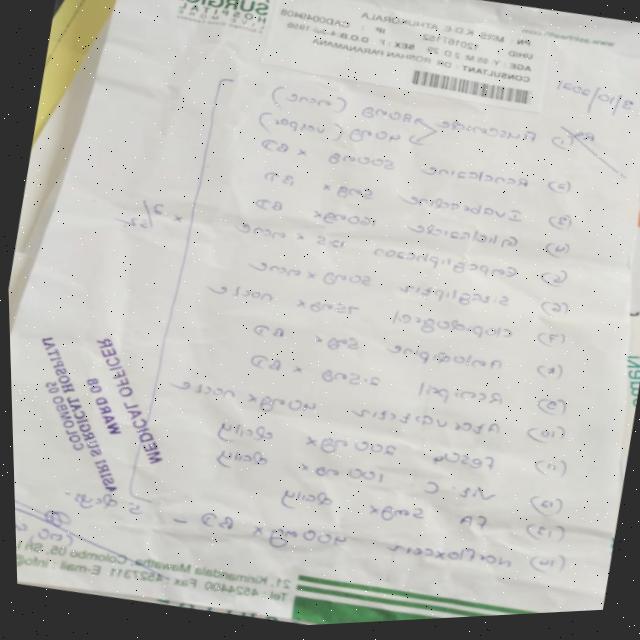 SURGICAL
HOSPITAL
PN : MISS K.D.E ATHUKORALA
UHID : 120161152 IP : CAD0049408
AGE : Y 55 M 2 D 29 SEX : F D.O.B-4-Jul-1966
CONSULTANT : DR ROSHAN PARANAMANA
3/10/2021
Rx
(1) Furosemide 80mg (mane)
40mg (vesper)
(2) Ranolazine 500mg x BD
(3) Ivabradine 5mg x BD
(4) 120mg x BD
(5) Empagliflozin 12.5 x mane
(6) Sitagliptin 50mg x mane
(7) clopidogrel 75mg x nocte
(8) Amlodipine 5mg x BD
(9) Ramipril 2.5mg x BD
(10) Atorvastatin 40mg x nocte
(11) FeSO4 200mg x daily
(12) Vit. C 100mg x daily
(13) FA 5mg x daily
(14) Norfloxacin 400mg x BD - 5 days
x 2/52
MEDICAL OFFICER
WARD 08
ASIRI SURGICAL HOSPITAL
COLOMBO 05
21, Kirimandala Mawatha, Colombo 05, Sri
Tel: 4524400 Fax: 4527311 E-mail: info@